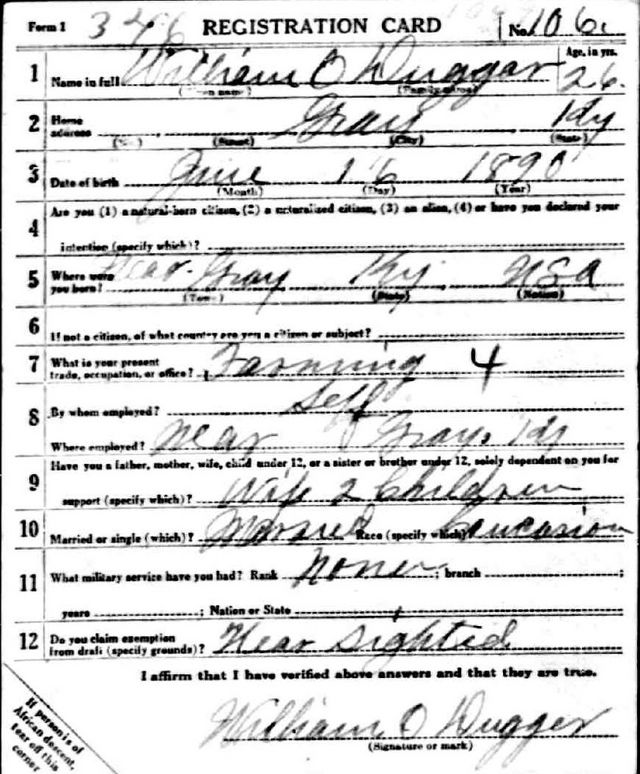 Form 1 346 REGISTRATION CARD No. 106.
1 Name in full William O Duggar Age, in yrs. 26.
(Given name) (Family name)
2 Home address Gray Ky
(No.) (Street) (City) (State)
3 Date of birth June 16 1890
(Month) (Day) (Year)
4 Are you (1) a natural-born citizen, (2) a naturalized citizen, (3) an alien, (4) or have you declared your
intention (specify which)?
5 Where were you born? Near Gray Ky USA
(Town) (State) (Nation)
6 If not a citizen, of what country are you a citizen or subject?
7 What is your present trade, occupation, or office? Farming 4
8 By whom employed? Self
Where employed? Near Gray, Ky
9 Have you a father, mother, wife, child under 12, or a sister or brother under 12, solely dependent on you for
support (specify which)? Wife 2 Children
10 Married or single (which)? Married Race (specify which)? Caucasion
11 What military service have you had? Rank None; branch ;
years ; Nation or State
12 Do you claim exemption from draft (specify grounds)? Near Sighted
I affirm that I have verified above answers and that they are true.
William O Dugger
(Signature or mark)
If person is of
African descent,
tear off this
corner